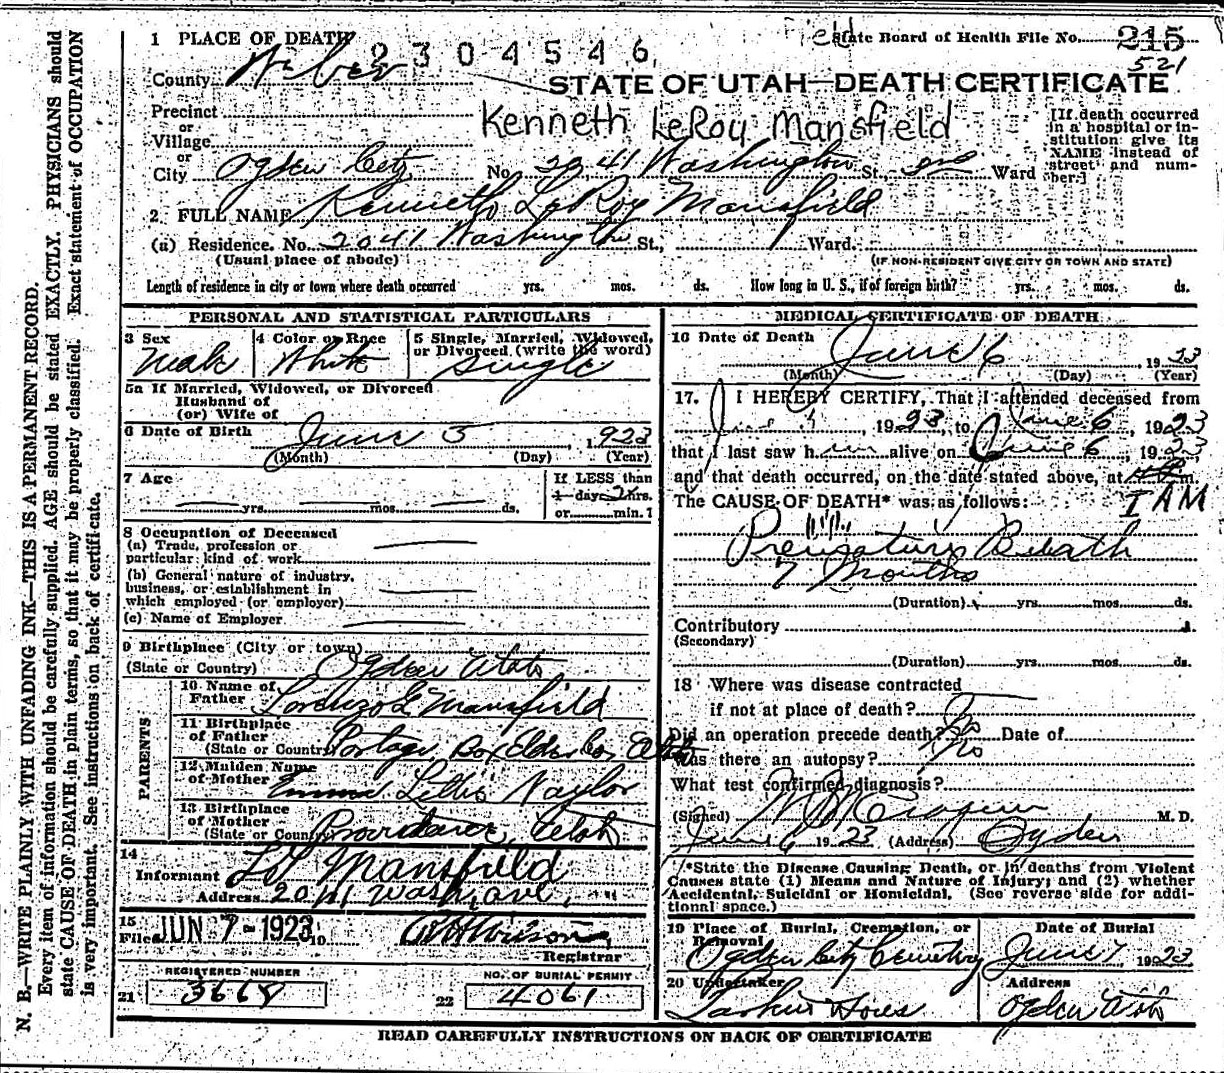 N. B.—WRITE PLAINLY WITH UNFADING INK—THIS IS A PERMANENT RECORD.
Every item of information should be carefully supplied. AGE should be stated EXACTLY. PHYSICIANS should
state CAUSE OF DEATH in plain terms, so that it may be properly classified. Exact statement of OCCUPATION
is very important. See instructions on back of certificate.
1 PLACE OF DEATH
2304546
State Board of Health File No. 215
521
County Weber
STATE OF UTAH—DEATH CERTIFICATE
Precinct
or
Village
Kenneth LeRoy Mansfield
[If death occurred in a hospital or institution give its NAME instead of street and number.]
or
City Ogden City No. 2041 Washington St., Ward
2 FULL NAME Kenneth LeRoy Mansfield
(a) Residence. No. 2041 Washington St., Ward.
(Usual place of abode) (IF NON-RESIDENT GIVE CITY OR TOWN AND STATE)
Length of residence in city or town where death occurred yrs. mos. ds. How long in U. S., if of foreign birth? yrs. mos. ds.
PERSONAL AND STATISTICAL PARTICULARS
3 Sex Male
4 Color or Race White
5 Single, Married, Widowed, or Divorced (write the word) Single
5a If Married, Widowed, or Divorced
Husband of
(or) Wife of
6 Date of Birth June 5, 1923
(Month) (Day) (Year)
7 Age yrs. mos. ds.
If LESS than
1 day 2 hrs.
or min.?
8 Occupation of Deceased
(a) Trade, profession or
particular kind of work
(b) General nature of industry,
business, or establishment in
which employed (or employer)
(c) Name of Employer
9 Birthplace (City or town)
(State or Country) Ogden Utah
PARENTS
10 Name of
Father Lorenzo Mansfield
11 Birthplace
of Father
(State or Country) Portage, Box Elder Co, Utah
12 Maiden Name
of Mother Emma Lillis Naylor
13 Birthplace
of Mother
(State or Country) Providence, Utah
14
Informant Mansfield
Address 2041 Wash. ave.
15
Filed JUN 7-1923 19
Registrar
REGISTERED NUMBER
21 3668
NO. OF BURIAL PERMIT
22 4061
MEDICAL CERTIFICATE OF DEATH
16 Date of Death June 6 1923
(Month) (Day) (Year)
17. I HEREBY CERTIFY, That I attended deceased from
1923, to June 6, 1923
that I last saw him alive on June 6, 1923
and that death occurred, on the date stated above, at m.
The CAUSE OF DEATH* was as follows: 1 AM
Premature Birth
7 Months
(Duration) yrs. mos. ds.
Contributory
(Secondary)
(Duration) yrs. mos. ds.
18 Where was disease contracted
if not at place of death?
Did an operation precede death? No Date of
Was there an autopsy? No
What test confirmed diagnosis?
(Signed) M. D.
June 6 1923 (Address) Ogden
*State the Disease Causing Death, or in deaths from Violent
Causes state (1) Means and Nature of Injury; and (2) whether
Accidental, Suicidal or Homicidal. (See reverse side for addi-
tional space.)
19 Place of Burial, Cremation, or
Removal
Ogden City Cemetery
Date of Burial
June 7, 1923
20 Undertaker
Larkin Sons
Address
Ogden Utah
READ CAREFULLY INSTRUCTIONS ON BACK OF CERTIFICATE